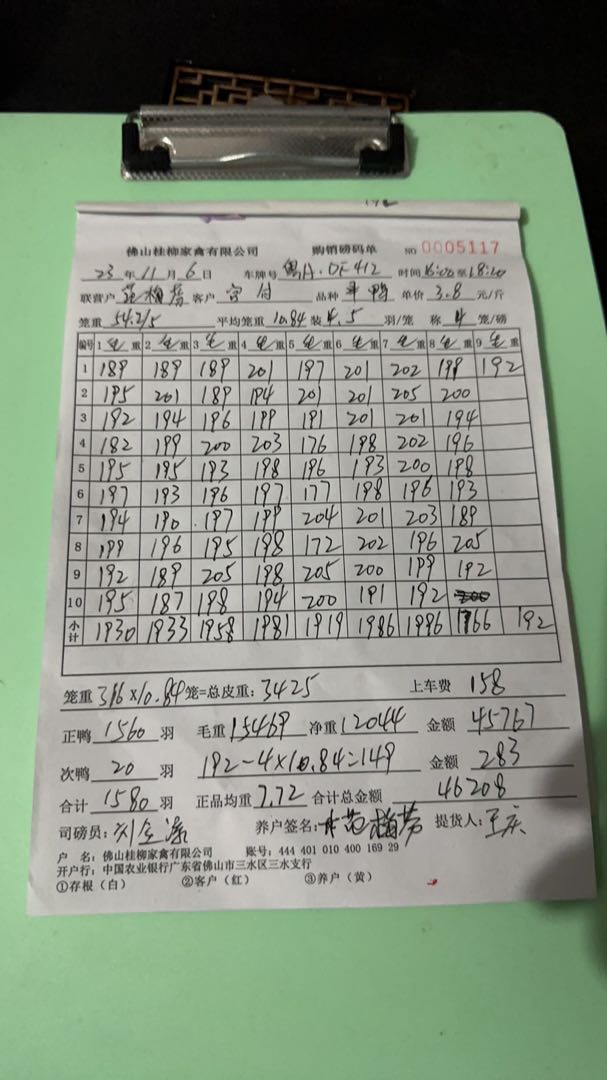 佛山桂柳家禽有限公司 购销磅码单 NO 0005117
23年11月6日 车牌号 粤A·DF412 时间16:00至18:20
联营户 范梅芳 客户 品种 单价 3.8 元/斤
笼重 54.2/5 平均笼重 10.84 装 4.5 羽/笼 称 4 笼/磅
编号 1 毛重 2 毛重 3 毛重 4 毛重 5 毛重 6 毛重 7 毛重 8 毛重 9 毛重
1 189 189 189 201 197 201 202 199 192
2 195 201 189 194 201 201 205 200
3 192 194 196 199 191 201 201 194
4 182 199 200 203 176 198 202 196
5 195 195 193 198 196 193 200 198
6 197 193 196 197 177 198 196 193
7 194 190 197 199 204 201 203 189
8 199 196 195 198 172 202 196 205
9 192 189 205 198 205 200 199 192
10 195 187 198 194 200 191 192
小计 1930 1933 1958 1981 1919 1986 1996 1766 192
笼重 316×10.84 笼=总皮重: 3425 上车费 158
正鸭 1560 羽 毛重 15469 净重 12044 金额 45767
次鸭 20 羽 192-4×10.84=149 金额 283
合计 1580 羽 正品均重 7.72 合计总金额 46208
司磅员: 养户签名: 范梅芳 提货人: 王庆
户 名: 佛山桂柳家禽有限公司 账号: 444 401 010 400 169 29
开户行: 中国农业银行广东省佛山市三水区三水支行
①存根（白） ②客户（红） ③养户（黄）